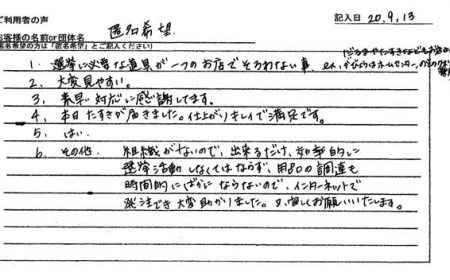 ご利用者の声
記入日 20.9.13
お客様の名前or団体名 匿名希望
匿名希望の方は「匿名希望」とご記入ください)
1. 選挙に必要な道具が一つのお店でそろわない事、
2. 大変見やすい。
3. 素早い対応に感謝してます。
4. 本日たすきが届きました。仕上がりキレイで満足です。
5. はい
6. その他 組織がないので、出来るだけ、効率的に
選挙活動しなくてはならず、用品の調達も
時間的にばかにならないので、インターネットで
発注でき大変助かりました。又、宜しくお願いいたします。